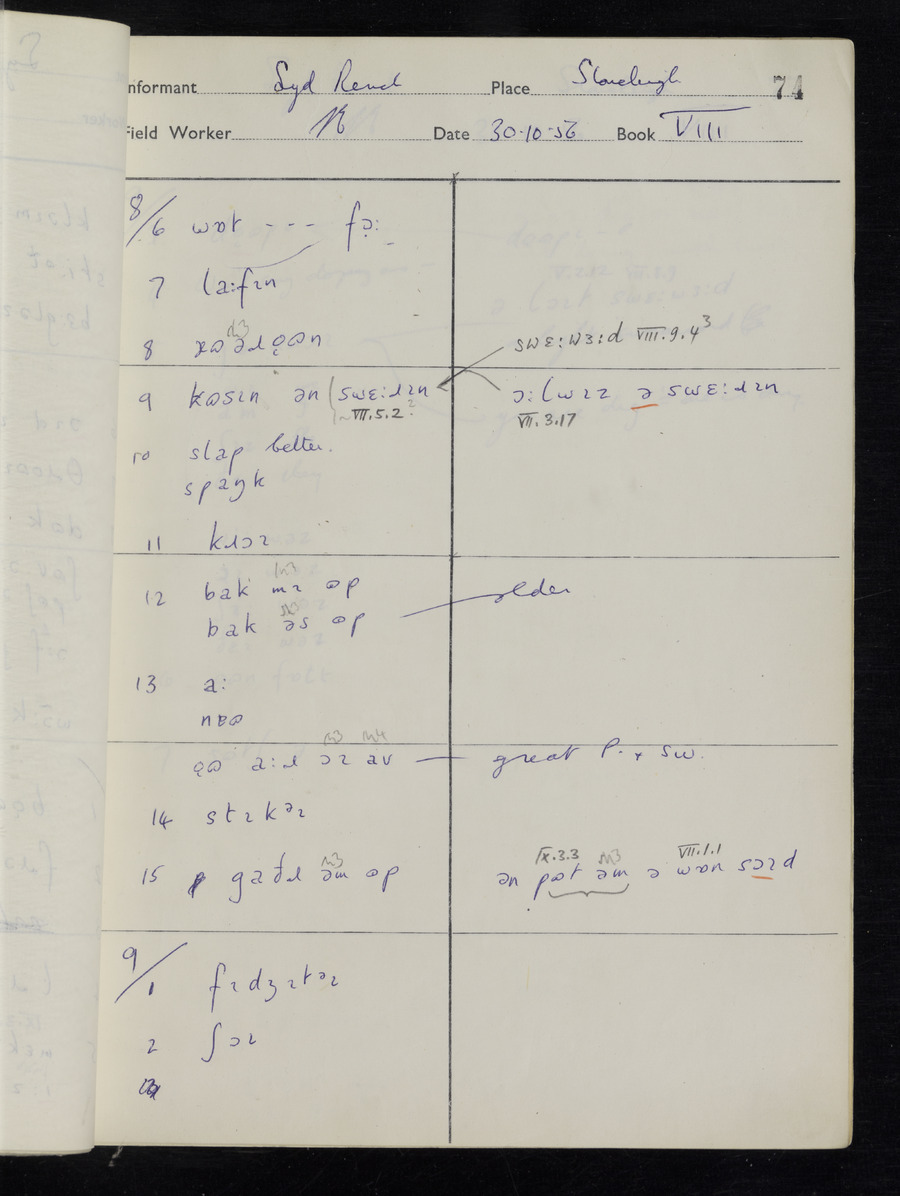 Informant Syd Place Stoneleigh 74
Field Worker Date 30-10-56 Book VIII
8/6 wɒt --- fɔ:
7 la:fɪn
8
swɛ:wɜ:d VIII.9.4³
9 kɷsɪn ən swɛ:ɹɪn ɔ:lwɪz ə swɛ:ɹɪn
VII.5.2 VII.3.17
10 slap better.
spaŋk
11 kɹɔɪ
12 bak mɪ ɷp
bak əs ɷp older
13 a:
nɐɷ
a:ɹ ɔɪ av great P. + sw.
14 stɪkəɪ
IX.3.3 VII.1.1
15 gaðɹ əm ɷp ən pɷt əm ə wɒn sɔɪd
9/1 fɪdʒɪtəɪ
2 ʃɔɪ